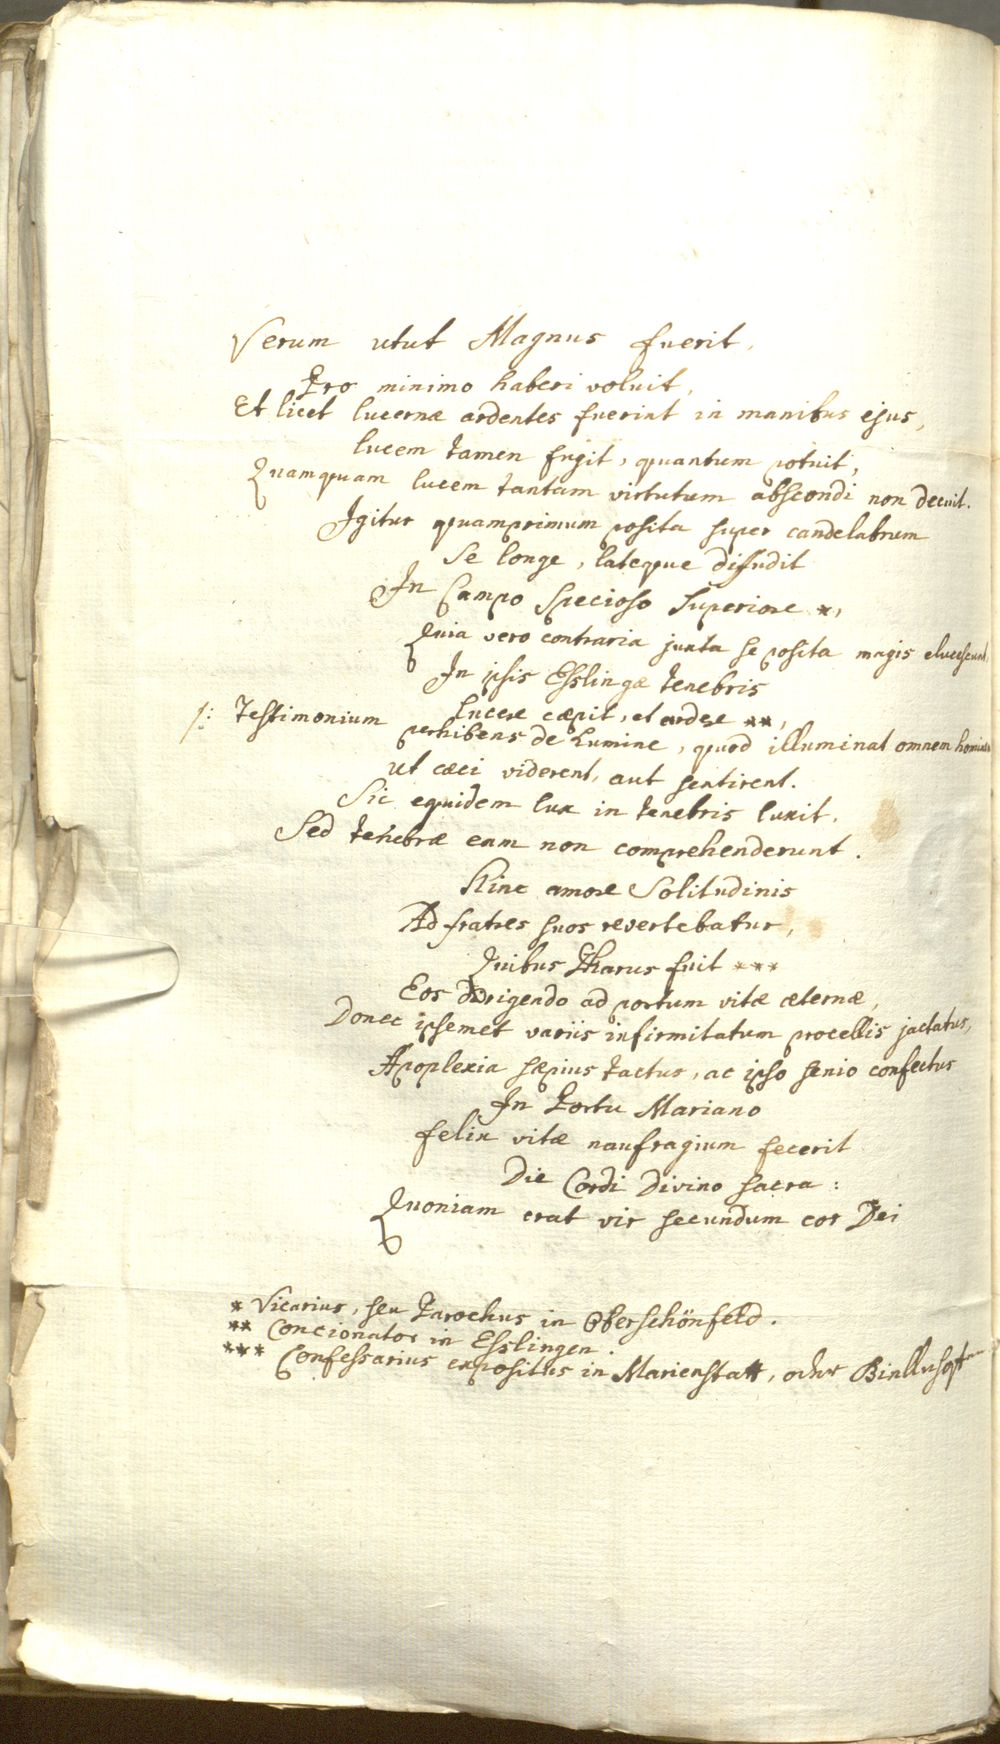 Verum utut Magnus fuerit,
Pro minimo haberi voluit,
Et licet lucernæ ardentes fuerint in manibus ejus,
lucem tamen fugit, quantum potuit,
Quamquam lucem tantam virtutum abscondi non decuit.
Igitur quamprimum posita super candelabrum
Se longe, lateque diffudit
In Campo Specioso Superiore *,
Quia vero contraria juxta se posita magis elucescunt,
In ipsis Esslingæ tenebris
lucere cæpit, et ardere **,
/: Testimonium perhibens de Lumine, quod illuminat omnem hominem
ut cæci viderent, aut sentirent.
Sic equidem lux in tenebris luxit,
Sed tenebræ eam non comprehenderunt.
Hinc amore Solitudinis
Ad fratres suos revertebatur,
Quibus Pharus fuit ***
Eos dirigendo ad portum vitæ æternæ,
Donec ipsemet variis infirmitatum procellis jactatus,
Apoplexia sæpius tactus, ac ipso senio confectus
In Portu Mariano
felix vitæ naufragium fecerit
Die Cordi Divino sacra:
Quoniam erat vir secundum cor Dei
* Vicarius, seu Parochus in Oberschönfeld.
** Concionator in Esslingen.
*** Confessarius expositus in Marienstatt, oder